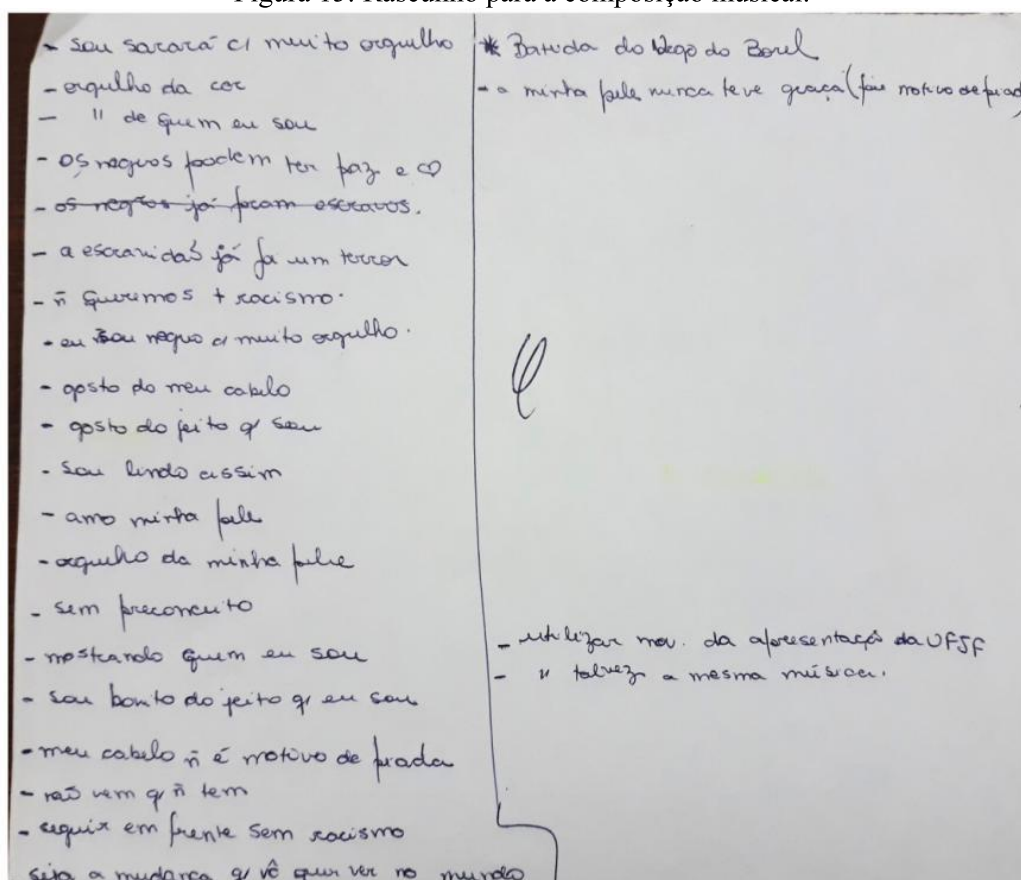 Figura 15: Rascunho para a composição musical.
- sou sarará c/ muito orgulho
- orgulho da cor
- " de quem eu sou
- os negros podem ter paz e ♡
- os negros já foram escravos.
- a escravidão já foi um terror
- ñ queremos + racismo.
- eu sou negro c/ muito orgulho.
- gosto do meu cabelo
- gosto do jeito q/ sou
- sou lindo assim
- amo minha pele
- orgulho da minha pele
- sem preconceito
- mostrando quem eu sou
- sou bonito do jeito q/ eu sou
- meu cabelo ñ é motivo de piada
- não vem q/ ñ tem
- seguir em frente sem racismo
seja a mudança q/ vê quer ver no mundo
* Batida do Nego do Borel
- a minha pele nunca teve graça (foi motivo de piad
- utilizar mov. da apresentação da UFJF
- " talvez a mesma música.